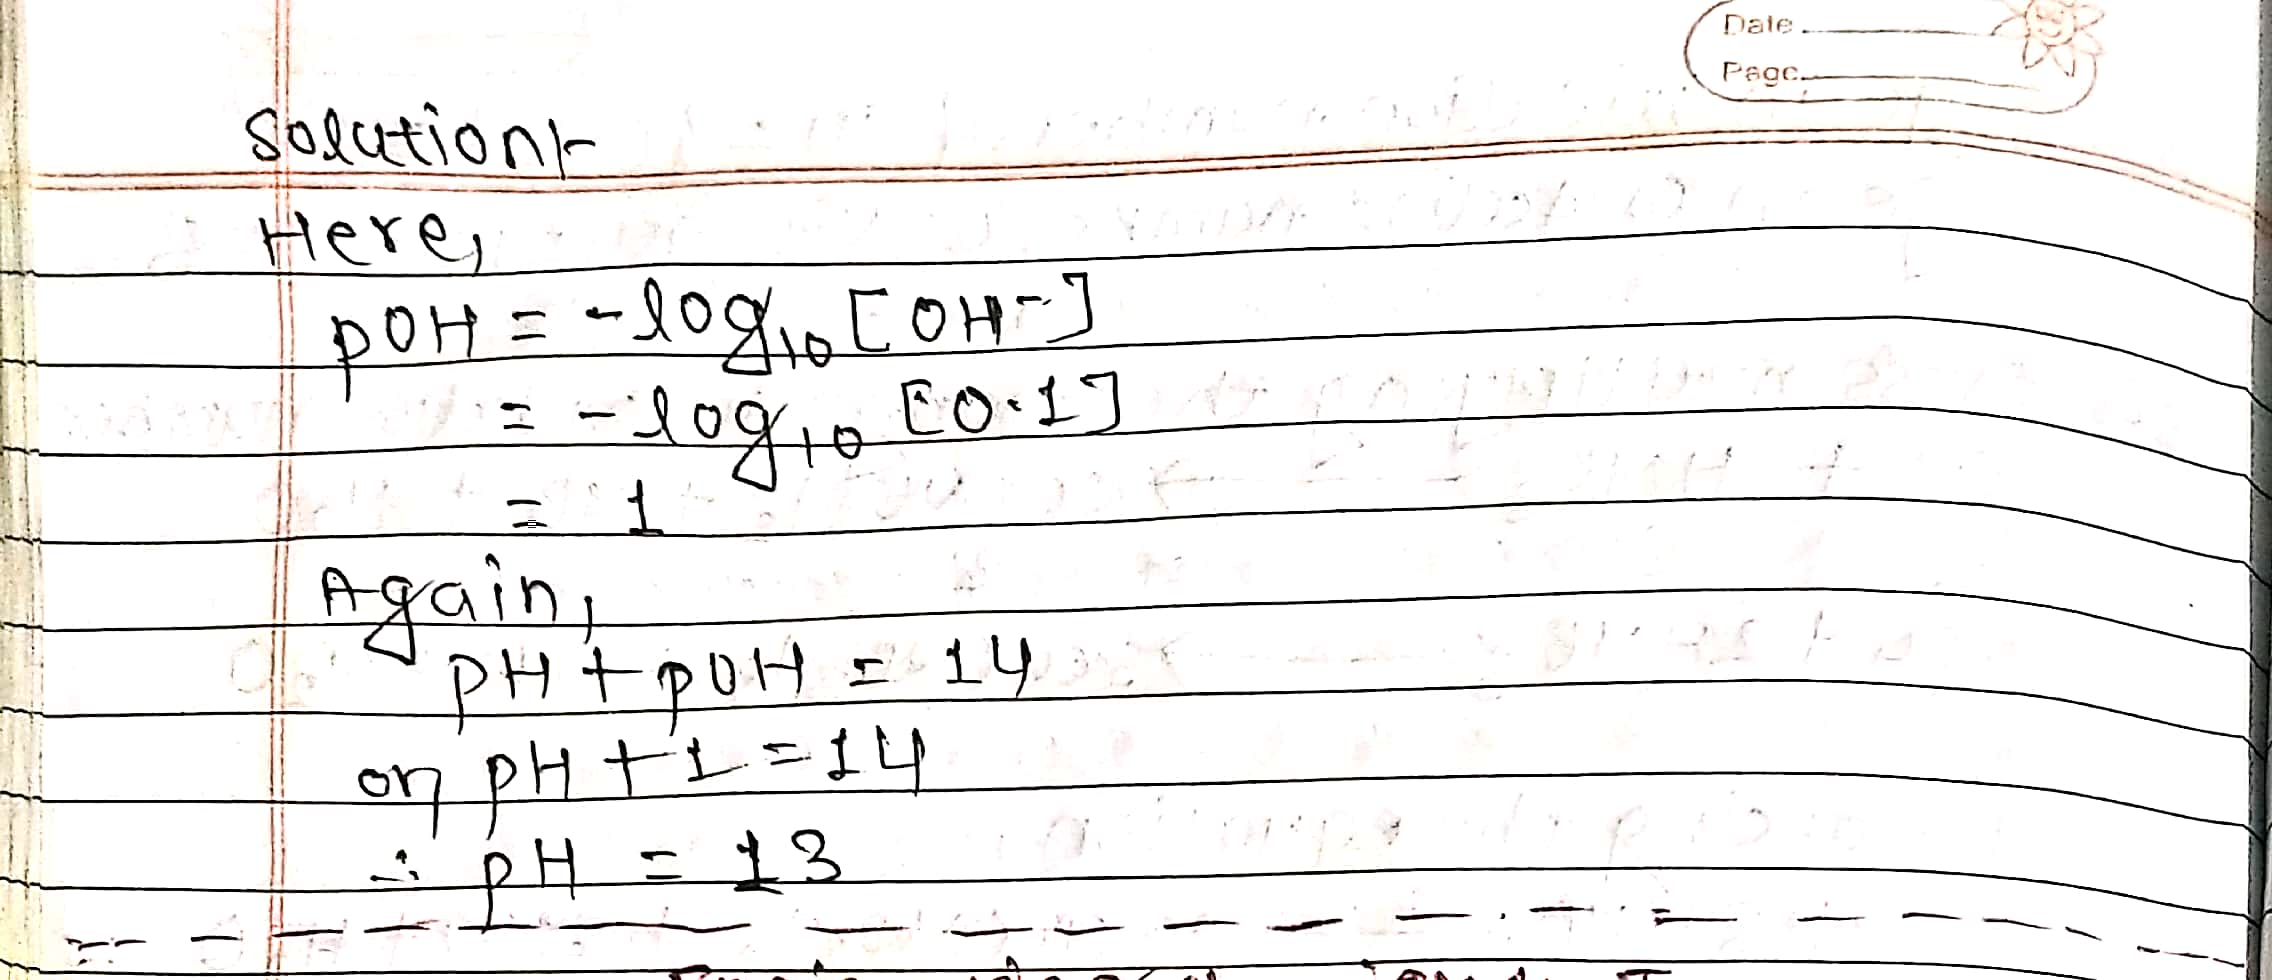 Date
Page
Solution:-
Here,
pOH = -log₁₀ [OH⁻]
= -log₁₀ [0.1]
= 1
Again,
pH + pOH = 14
or, pH + 1 = 14
∴ pH = 13